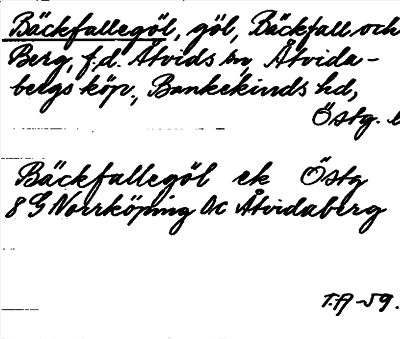 Bäckfallegöl, göl, Bäckfall och
Berg, f.d. Åtvids sn, Åtvida-
bergs köp., Bankekinds hd,
Östg. l
Bäckfallegöl ek Östg
8 G Norrköping Ac Åtvidaberg
T.A -59.